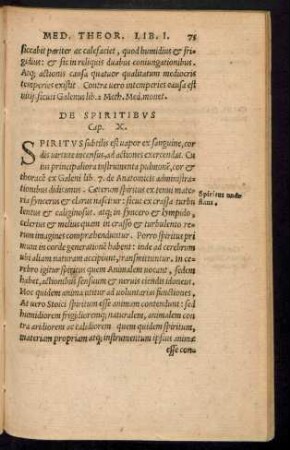 MED. THEOR. LIB. I. 75
siccabit pariter ac calefaciet, quod humidius & fri-
gidius: & sic in reliquis duabus coniugationibus.
Atq; actionis causa quatuor qualitatum mediocris
temperies existit. Contra uero intemperies causa est
uitij, sicuti Galenus lib. 2 Meth. Med. monet.
DE SPIRITIBVS
Cap. X.
SPIRITVS subtilis est uapor ex sanguine, cor
dis uirtute incensus, ad actiones exercendas. Cu
ius principaliora instrumenta pulmonē, cor &
thoracē ex Galeni lib. 7. de Anatomicis administra-
tionibus didicimus. Cæterum spiritus ex tenui mate-
ria syncerus & clarus nascitur: sicut ex crassa turbu
lentus & caliginosus. atq; in syncero & lympido,
celerius & melius quàm in crasso & turbulento re-
rum imagines comprehenduntur. Porro spiritus pri
mam in corde generationē habent: inde ad cerebrum
ubi aliam naturam accipiunt, transmittuntur. In ce-
rebro igitur spiritus quem Animalem uocant, sedem
habet, actionibus sensuum & neruis eiendis idoneus.
Hoc quidem anima utitur ad uoluntarias functiones.
At uero Stoici spiritum esse animam contendunt: sed
humidiorem frigidioremq; naturalem, animalem con
tra aridiorem ac calidiorem quem quidem spiritum,
materiam propriam atq; instrumentum ipsius animæ
esse con-
Spiritus unde
fiant.